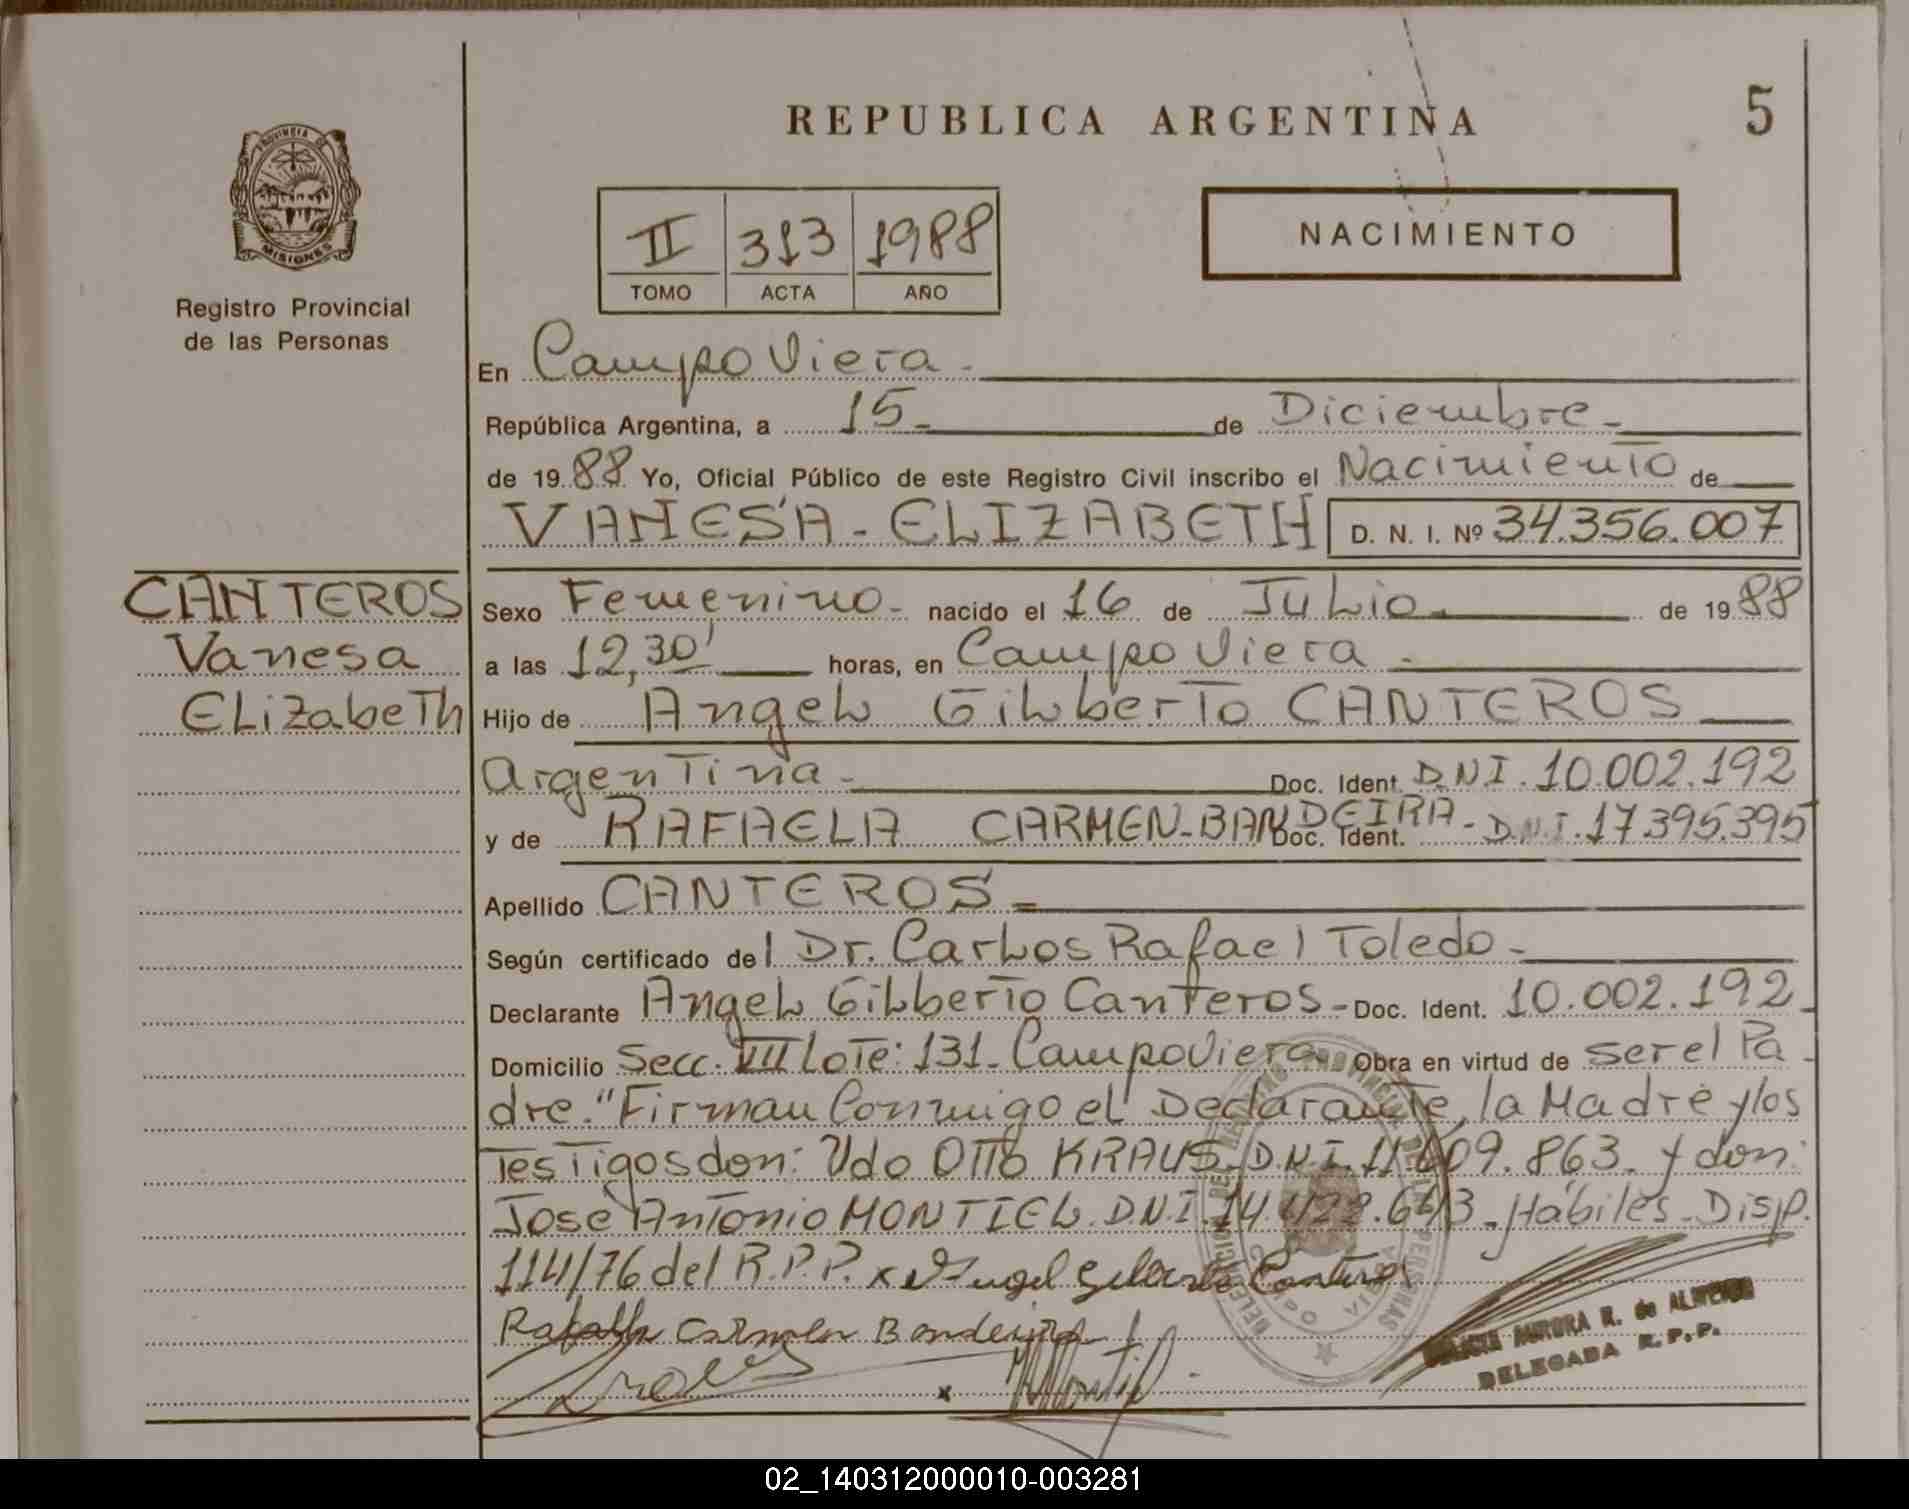 REPUBLICA ARGENTINA
5
PROVINCIA DE
MISIONES
Registro Provincial
de las Personas
II 313 1988
TOMO ACTA AÑO
NACIMIENTO
En Campo Viera.
República Argentina, a 15 de Diciembre
de 1988 Yo, Oficial Público de este Registro Civil inscribo el Nacimiento de
VANESA - ELIZABETH D. N. I. Nº 34.356.007
CANTEROS
Vanesa
Elizabeth
Sexo Femenino nacido el 16 de Julio de 1988
a las 12,30' horas, en Campo Viera
Hijo de Angel Gilberto CANTEROS
Argentina Doc. Ident. D.N.I. 10.002.192
y de RAFAELA CARMEN-BANDEIRA Doc. Ident. D.N.I. 17.395.395
Apellido CANTEROS
Según certificado del Dr. Carlos Rafael Toledo
Declarante Angel Gilberto Canteros Doc. Ident. 10.002.192
Domicilio Secc. VIII Lote: 131 Campo Viera Obra en virtud de ser el Pa
dre." Firman Conmigo el Declarante, la Madre y los
Testigos don: Udo Otto KRAUS D.N.I. 11.609.863. y don:
José Antonio MONTIEL D.N.I. 14. .643. Hábiles Disp.
114/76 del R.P.P. x Angel Gilberto Canteros
Rafaela Carmen Bandeira
AURORA R. de ALMEIDA
DELEGADA R.P.P.
02_140312000010-003281